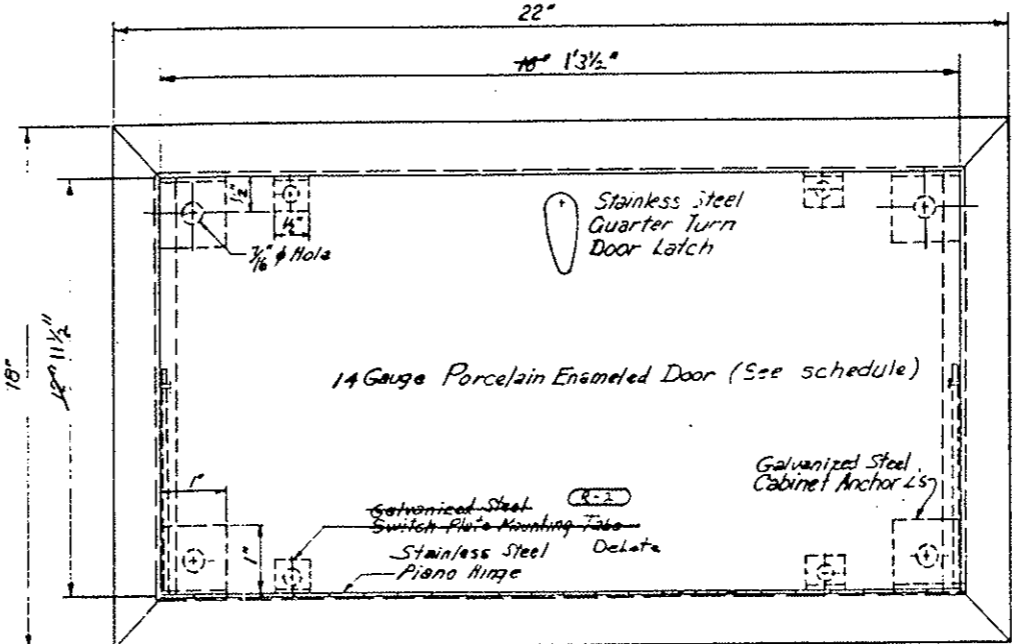 22"
18" 1'3½"
Stainless Steel
Quarter Turn
Door Latch
½"
½"
7/16" ϕ Hole
18"
12" 11½"
14 Gauge Porcelain Enameled Door (See schedule)
1"
1"
Galvanized Steel
Cabinet Anchor Ls
Galvanized Steel
R-2
Switch Plate Mounting Tabs
Delete
Stainless Steel
Piano Hinge